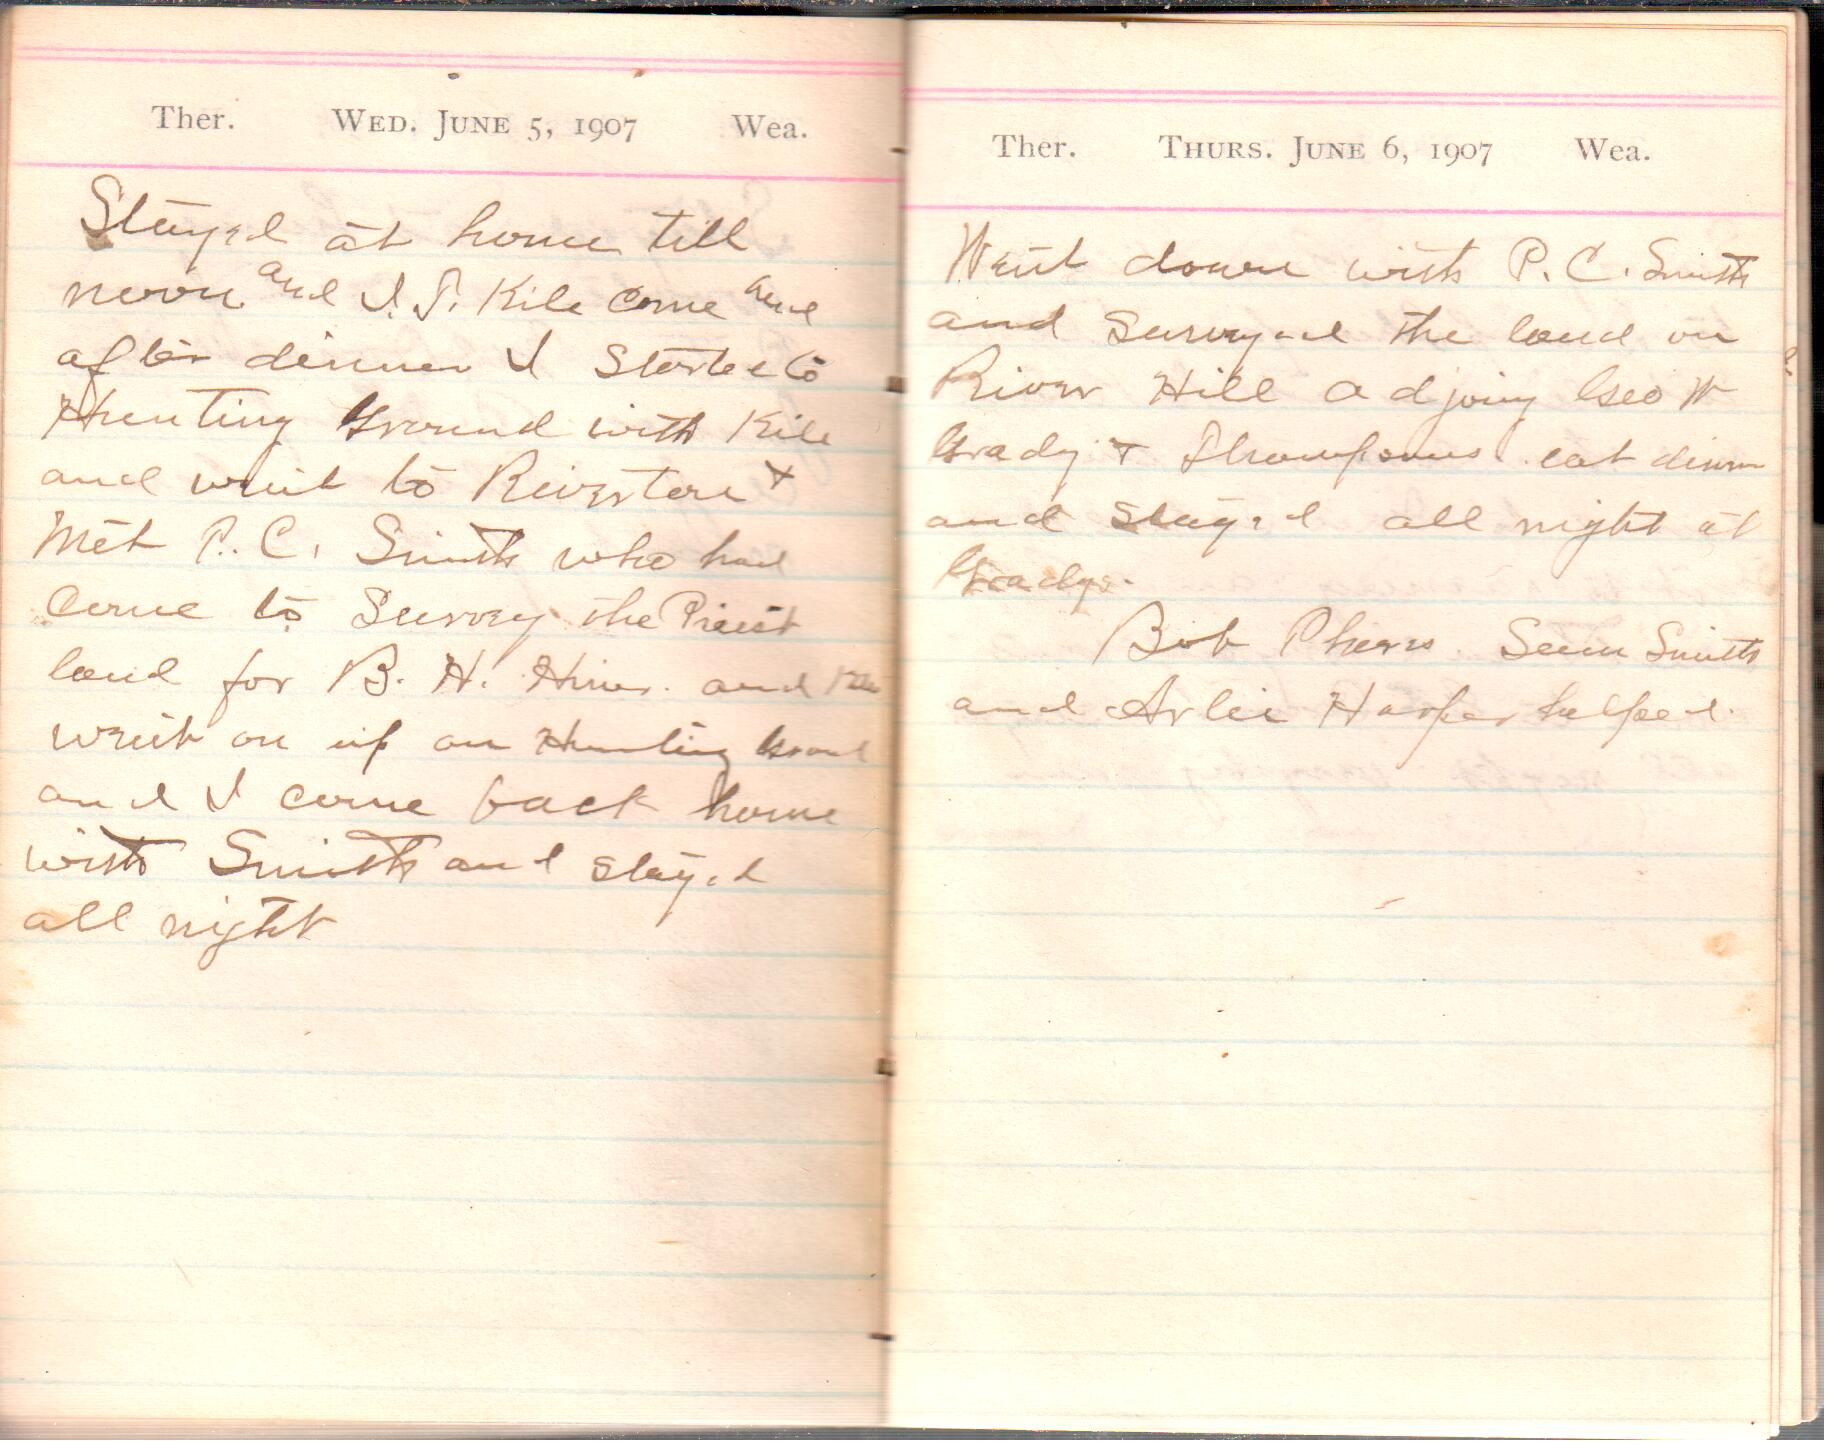 Ther. WED. JUNE 5, 1907 Wea.
Stayed at home till
noon and I. J. Kile come and
after dinner I Started to
Hunting Ground with Kile
and went to Riverton &
Met P. C. Smith who had
come to Survey the Priest
land for B. H. Hiner. and Kile
went on up on Hunting Ground
and I come back home
with Smith and stayed
all night
Ther. THURS. JUNE 6, 1907 Wea.
Went down with P. C. Smith
and Surveyed the land on
River Hill adjoing Geo W
Grady & Thompsons. eat dinner
and stayed all night at
Gradys.
Bob Phares. Smith
and Arlie Harper helped.